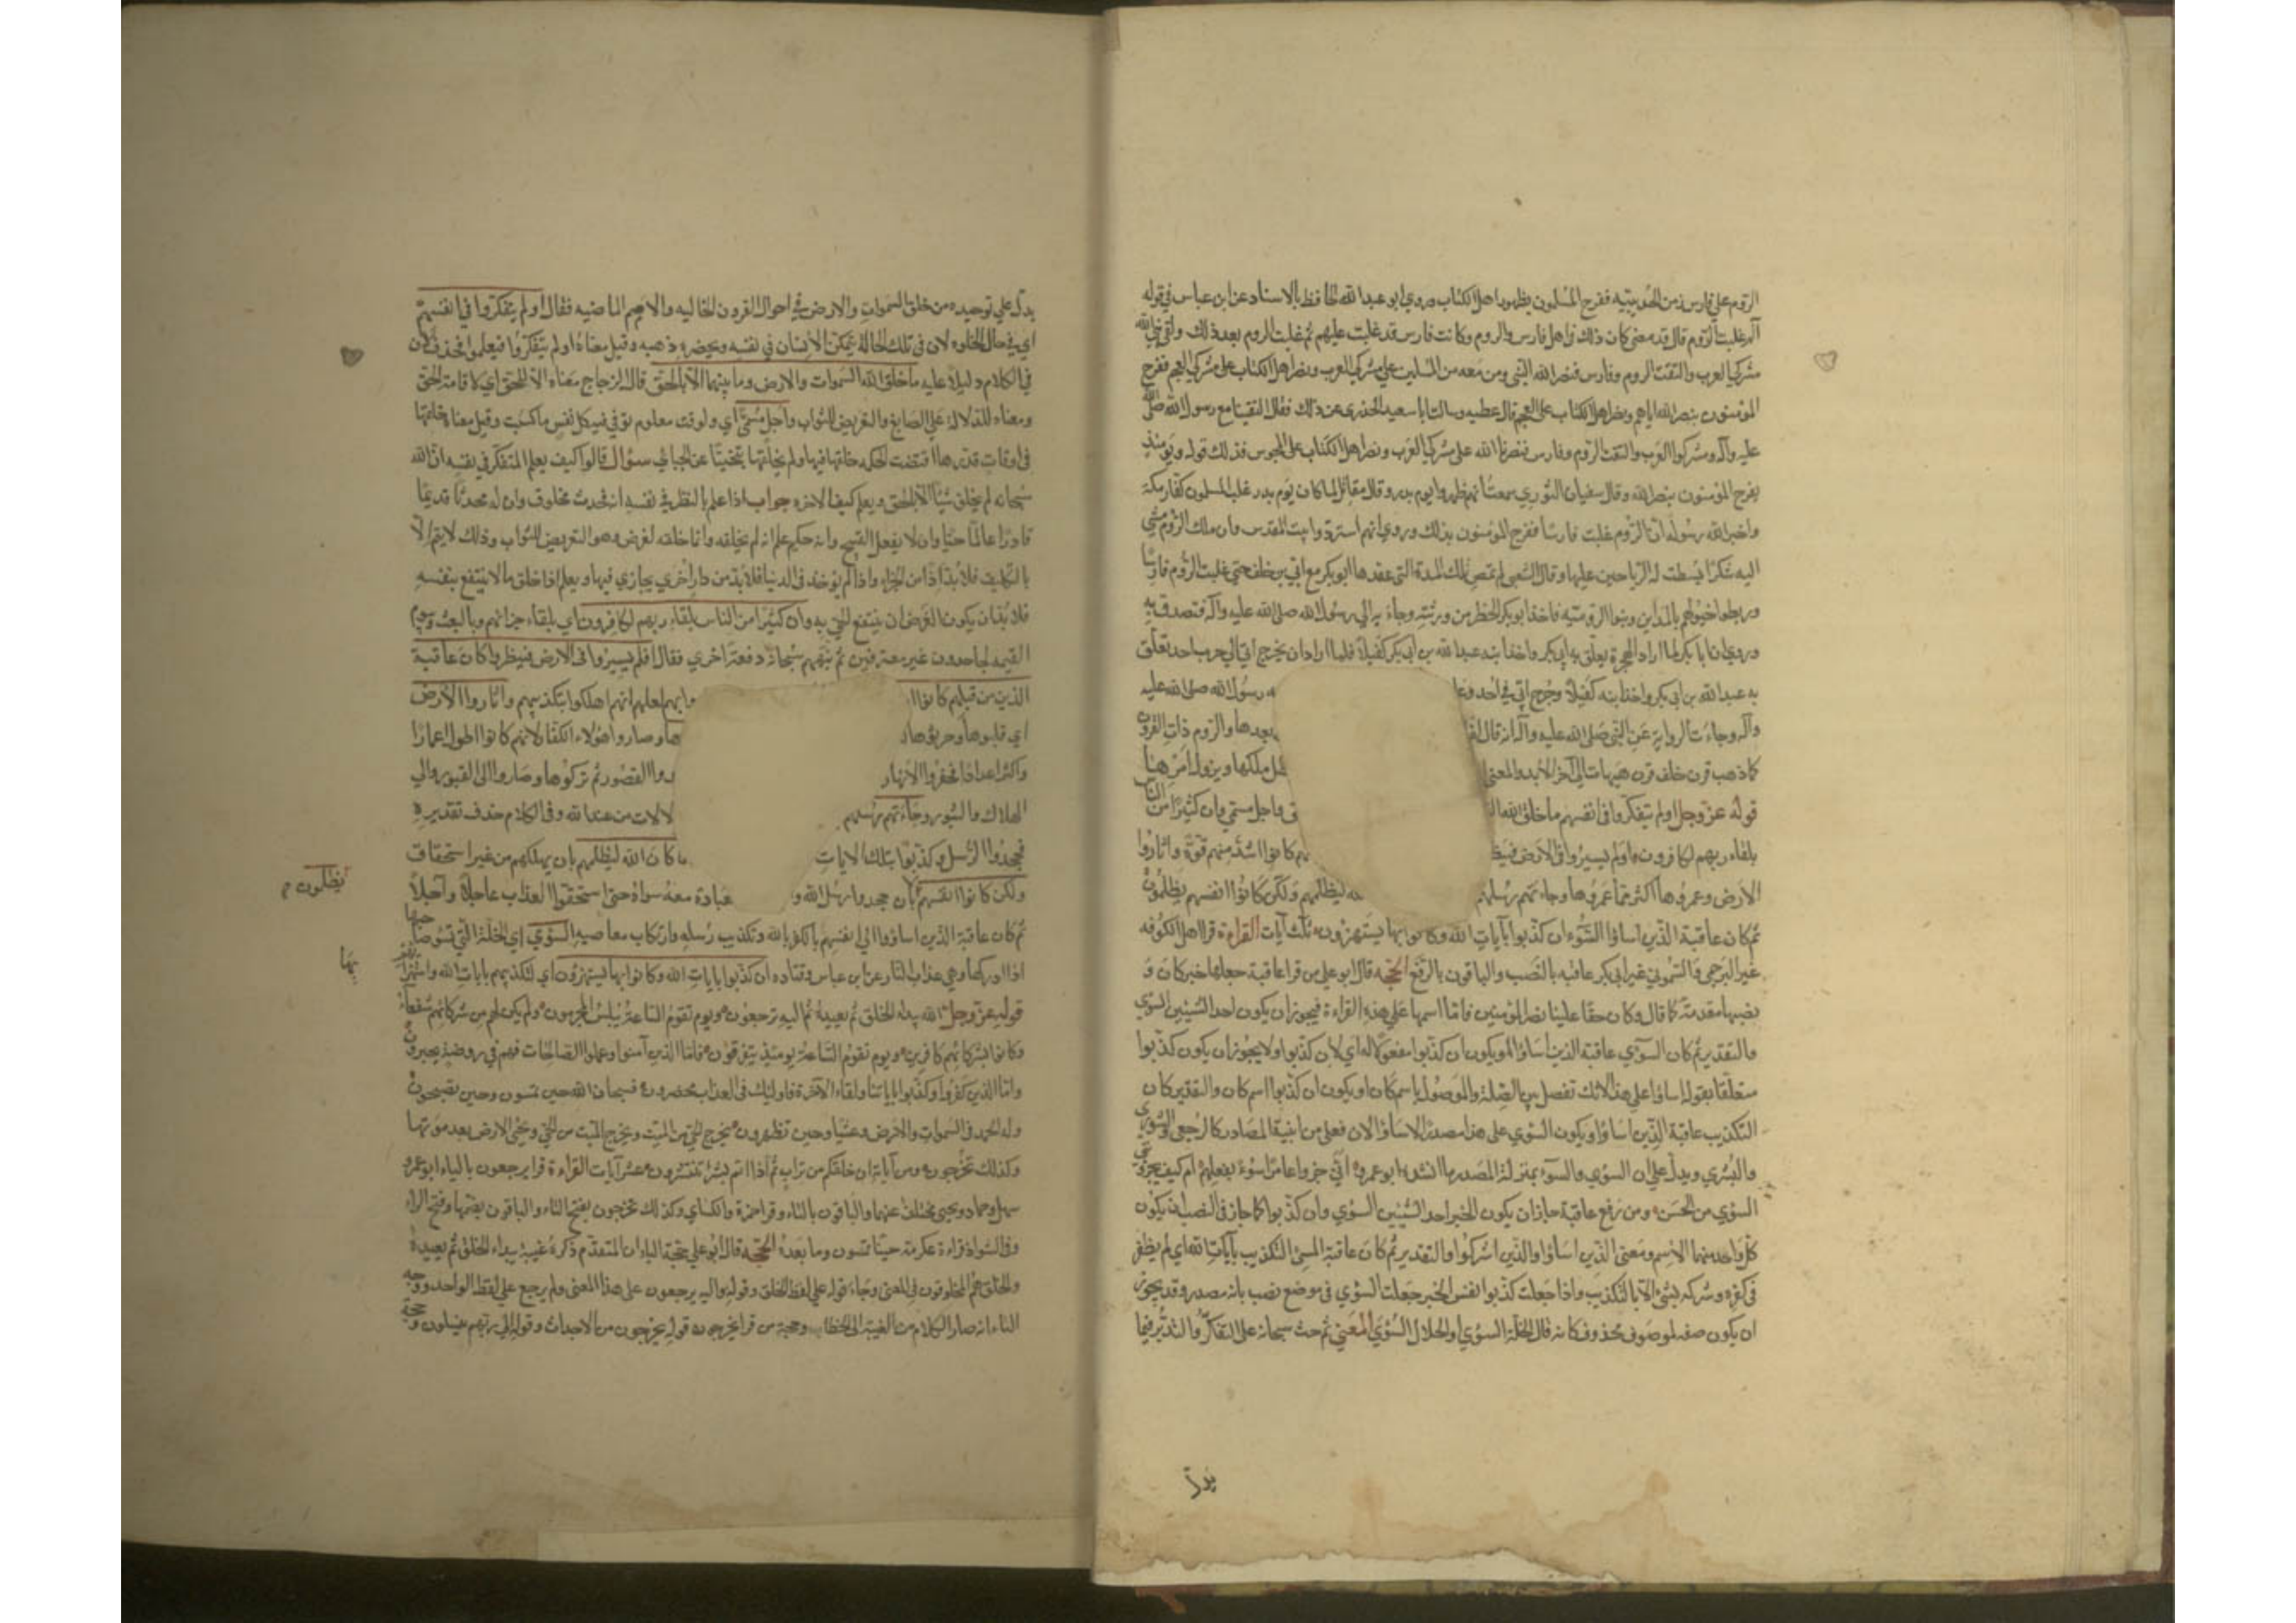 الروم على فارس زمن الحديبية ففرح المسلمون بظهور اهل الكتاب وروى ابو عبد الله الحافظ بالاسناد عن ابن عباس في قوله
الم غلبت الروم قال قد مضى كان ذلك في اهل فارس والروم وكانت فارس قد غلبت عليهم ثم غلبت الروم بعد ذلك ولقى نبي الله
مشركي العرب والتقت الروم وفارس فنصر الله النبي ومن معه من المسلمين على مشركي العرب ونصر اهل الكتاب على مشركي العجم ففرح
المؤمنون بنصر الله اياهم ونصر اهل الكتاب على العجم قال عطيه وسالت ابا سعيد الخدري عن ذلك فقال التقينا مع رسول الله صلى الله
عليه وآله ومشركوا العرب والتقت الروم وفارس فنصرنا الله على مشركي العرب ونصر اهل الكتاب على المجوس فذلك قوله ويومئذ
يفرح المؤمنون بنصر الله وقال سفيان الثوري سمعت انهم ظهروا يوم بدر وقال مقاتل لما كان يوم بدر غلب المسلمون كفار مكة
واخبر الله رسوله ان الروم غلبت فارسا ففرح المؤمنون بذلك وروي انهم استردوا بيت المقدس وان ملك الروم مشى
اليه شكرا فبسطت له الرياحين عليها وقال الشعبي لم تمض تلك المدة التي عقدها ابو بكر مع ابي بن خلف حتى غلبت الروم فارسا
وربطوا خيولهم بالمداين وبنوا الرومية فاخذ ابو بكر الخطر من ورثته وجاء به الى رسول الله صلى الله عليه وآله فتصدق به
وروي ان ابا بكر لما اراد الهجرة تعلق به ابي بكر واخذ ابنه عبد الله بن ابي بكر كفيلا فلما اراد ان يخرج ابي الى حرب احد تعلق
به عبد الله بن ابي بكر واخذ ابنه كفيلا وجرح ابي في احد وعا رسول الله صلى الله عليه
وآله وجاءت الرواية عن النبي صلى الله عليه وآله انه قال لفا بعدها والروم ذات القرون
كلما ذهب قرن خلف قرن هيهات الى آخر الابد والمعنى ملكها ويزول امرها
قوله عز وجل اولم يتفكروا في انفسهم ما خلق الله ال ق واجل مسمى وان كثيرا من الناس
بلقاء ربهم لكافرون اولم يسيروا في الارض فينظ كانوا اشد منهم قوة واثاروا
الارض وعمروها اكثر مما عمروها وجاءتهم رسلهم ليظلمهم ولكن كانوا انفسهم يظلمون
ثم كان عاقبة الذين اساؤا السوءى ان كذبوا بآيات الله وكانوا بها يستهزؤن ثلث آيات القراءة قرا اهل الكوفه
غير البرجمي والشموني عن ابي بكر عاقبه بالنصب والباقون بالرفع الحجه قال ابو علي من قرا عاقبة جعلها خبر كان و
نصبها مقدمة كما قال وكان حقا علينا نصر المؤمنين فاما اسمها على هذه القراءة فيجوز ان يكون احد الشيئين السؤى
والتقدير ثم كان السوأى عاقبة الذين اساؤا ويكون ان كذبوا مفعولا له اي لان كذبوا ولا يجوز ان يكون كذبوا
متعلقا بقوله اساؤا على هذا لانك تفصل بين الصلة والموصول باسم كان او يكون ان كذبوا اسم كان والتقدير كان
التكذيب عاقبة الذين اساؤا ويكون السؤى على هذا مصدرا لاساؤا لان فعلى من ابنية المصادر كالرجعى والشورى
والبشرى ويدل على ان السؤى والسوء بمنزلة المصدر ما انشده ابو عمرو اني جزوا عامرا سوءا بفعلهم ام كيف يجزونني
السؤى من الحسن ومن رفع عاقبة جاز ان يكون الخبر احد الشيئين السؤى وان كذبوا كما جاز في النصب ان يكون
كل واحد منهما الاسم ومعنى الذين اساؤا والذين اشركوا والتقدير ثم كان عاقبة المسئ التكذيب بآيات الله اي لم يظفر
في كفره وشركه بشئ الا بالتكذيب واذا جعلت كذبوا نفس الخبر جعلت السؤى في موضع نصب بانه مصدر وقد يجوز
ان يكون صفه لموصوف محذوف كانه قال الخلة السؤى او الخلال السؤى المعنى ثم حث سبحانه على التفكر والتدبر فيما
يدل
يدل على توحيده من خلق السموات والارض في احوال القرون الخاليه والامم الماضيه فقال اولم يتفكروا في انفسهم
اي في حال الخلوه لان في تلك الحالة يتمكن الانسان في نفسه ويحضره ذهبه وقيل معناه اولم يتفكروا فيعلموا فحذف لان
في الكلام دليلا عليه ما خلق الله السموات والارض وما بينهما الا بالحق قال الزجاج معناه الا للحق اي لاقامة الحق
ومعناه للدلالة على الصانع والتعريض للثواب واجل مسمى اي ولوقت معلوم توفى فيه كل نفس ما كسبت وقيل معناه خلقها
في اوقات قدرها اقتضت الحكمه خلقها فيها ولم يخلقها عبثا عن الجبائي سؤال قالوا كيف يعلم المتفكر في نفسه ان الله
سبحانه لم يخلق شيئا الا بالحق ويعلم كيف الاخره جواب اذا علم بالنظر في نفسه انه محدث مخلوق وان له محدثا قديما
قادرا عالما حيا وانه لا يفعل القبيح وانه حكيم علم انه لم يخلقه وانما خلقه لغرض وهو التعريض للثواب وذلك لا يتم الا
بالتكليف فلا بد اذا من الجزاء واذا لم يوجد في الدنيا فلا بد من دار اخرى يجازي فيها ويعلم اذا خلق ما لا ينتفع بنفسه
فلا بد ان يكون الغرض ان ينتفع الحي به وان كثيرا من الناس بلقاء ربهم لكافرون اي بلقاء جزائهم وبالبعث ويوم
القيمه لجاحدون غير معترفين ثم نبههم سبحانه دفعة اخرى فقال افلم يسيروا في الارض فينظروا كيف كان عاقبة
الذين من قبلهم كانوا ا وابهم لعلهم انهم اهلكوا بتكذيبهم واثاروا الارض
اي قلبوها وحرثوها ها وصاروا هؤلاء الكفار لانهم كانوا اطول اعمارا
واكثر اعدادا فحفروا الانهار وا القصور ثم تركوها وصاروا الى القبور والى
الهلاك والثبور وجاءتهم رسلهم لالات من عند الله وفي الكلام حذف تقديره
فجحدوا الرسل وكذبوا بتلك الايات ما كان الله ليظلمهم بان يهلكهم من غير استحقاق
ولكن كانوا انفسهم بان جحدوا رسل الله و عبادة معه سواه حتى استحقوا العذاب عاجلا وآجلا
يظلمون
ثم كان عاقبة الذين اساؤوا الى انفسهم بالكفر بالله وتكذيب رسله وارتكاب معاصيه السوءى اي الخلة التي تسوء صاحبها
اذا ادركها وهي عذاب النار عن ابن عباس وقتاده ان كذبوا بايات الله وكانوا بها يستهزؤن اي لتكذيبهم بايات الله واستهزائهم
بها
قوله عز وجل الله يبدأ الخلق ثم يعيده ثم اليه ترجعون ويوم تقوم الساعة يبلس المجرمون ولم يكن لهم من شركائهم شفعاء
وكانوا بشركائهم كافرين ويوم تقوم الساعة يومئذ يتفرقون فاما الذين آمنوا وعملوا الصالحات فهم في روضة يحبرون
واما الذين كفروا وكذبوا باياتنا ولقاء الآخرة فاولئك في العذاب محضرون فسبحان الله حين تمسون وحين تصبحون
وله الحمد في السموات والارض وعشيا وحين تظهرون يخرج الحي من الميت ويخرج الميت من الحي ويحيي الارض بعد موتها
وكذلك تخرجون ومن آياته ان خلقكم من تراب ثم اذا انتم بشر تنتشرون عشر آيات القراءة قرا يرجعون بالياء ابو عمرو
سهل وحماد ويحيى مختلف عنهما والباقون بالتاء وقرا حمزة والكسائي وكذلك تخرجون بفتح التاء والباقون بضمها وفتح الراء
وفي الشواذ قراءة عكرمة حينا تمسون وما بعده الحجه قال ابو علي حجة الياء ان المتقدم ذكره غيبة يبدأ الخلق ثم يعيده
والخلق هم المخلوقون في المعنى وجاء قوله على لفظ الخلق وقوله واليه يرجعون على هذا المعنى ولم يرجع على لفظ الواحد ووجه
التاء انه صار الكلام من الغيبة الى الخطاب وحجة من قرا يخرجون قوله يخرجون من الاجداث وقوله الى ربهم ينسلون وحجة